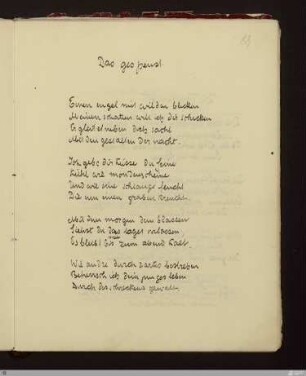 Das gespenst
Einen engel mit wilden blicken
Meinen schatten will ich dir schicken
Er gleitet neben dich sacht
Mit den gestalten der nacht.
Ich gebe dir küsse du feine
Kühl wie mondenscheine
Und wie eine schlange feucht
Die um einen graben kreucht
Mit dem morgen dem blassen
Siehst du das lager verlassen,
Es bleibt bis zum abend kalt.
Wie andre durch zartes bestreben
Beherrsch ich dein junges leben
Durch des schreckens gewalt.